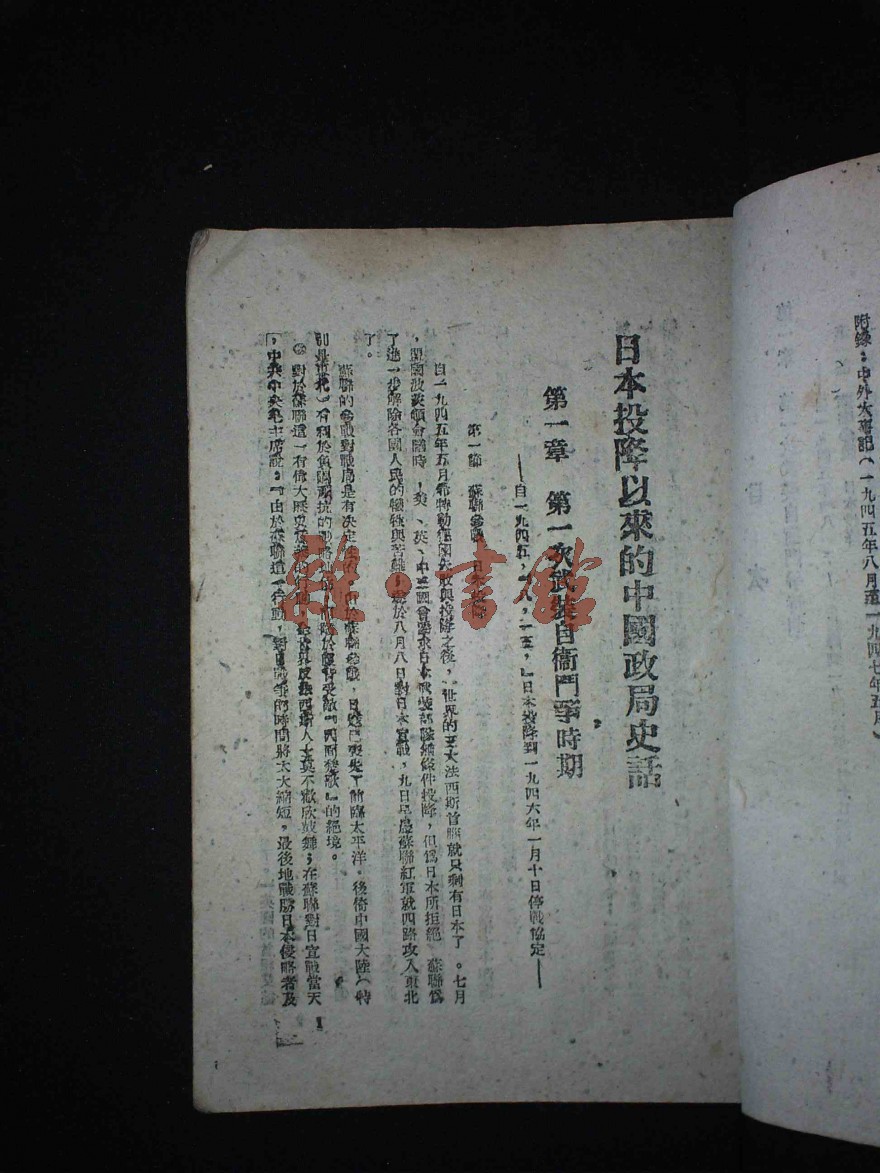 附錄：中外大事記（一九四五年八月至一九四七年五月）
日本投降以來的中國政局史話
第一章　第一次武裝自衞鬥爭時期
——自一九四五，八，一五，日本投降到一九四六年一月十日停戰協定——
第一節　蘇聯參戰　日本投降
自一九四五年五月希特勒德國失敗與投降之後，世界的三大法西斯首腦就只剩有日本了。七月
，盟國波茨頓會議時，美、英、中三國會要求日本武裝部隊無條件投降，但爲日本所拒絕　蘇聯爲
了進一步解除各國人民的犧牲與苦難，遂於八月八日對日本宣戰，九日早晨蘇聯紅軍就四路攻入東北
了。
蘇聯的參戰對戰局是有決定　由於蘇聯參戰，日寇已喪失了前臨太平洋。後倚中國大陸（特
別是東北）有利於負隅頑抗的戰略　陷於腹背受敵『四面楚歌』的絕境。
對於蘇聯這一有偉大歷史意義的行動，全世界反法西斯人士莫不歡欣鼓舞；在蘇聯對日宣戰當天
，中共中央毛主席說：『由於蘇聯這一行動，對日戰爭的時間將大大縮短。最後地戰勝日本侵略者及
1
雜·書館